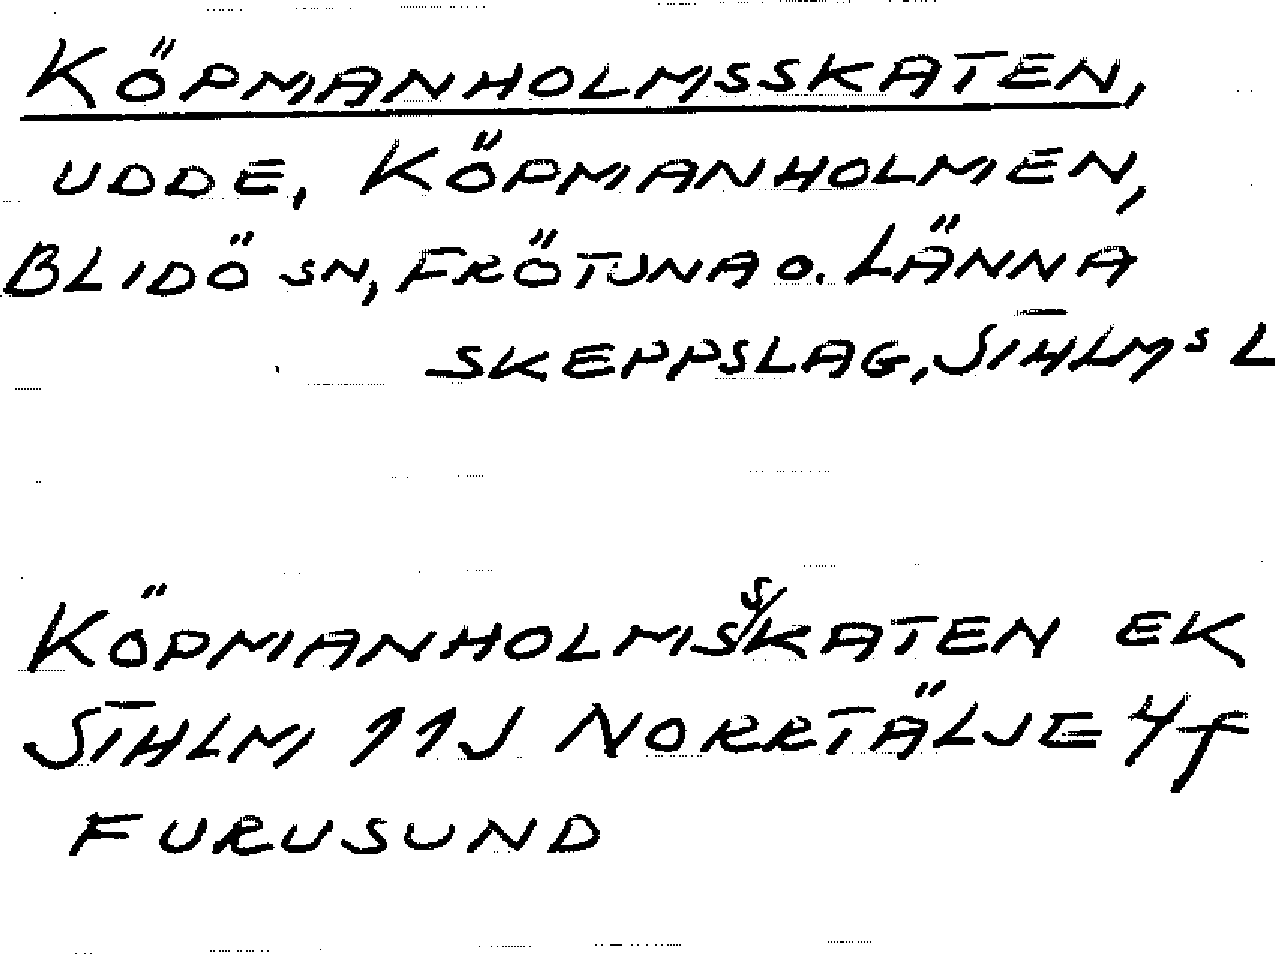 KÖPMANHOLMSSKATEN,
UDDE, KÖPMANHOLMEN,
BLIDÖ SN, FRÖTUNA O. LÄNNA
SKEPPSLAG, STHLMS L
KÖPMANHOLMSSKATEN EK
STHLM 11J NORRTÄLJE 4f
FURUSUND